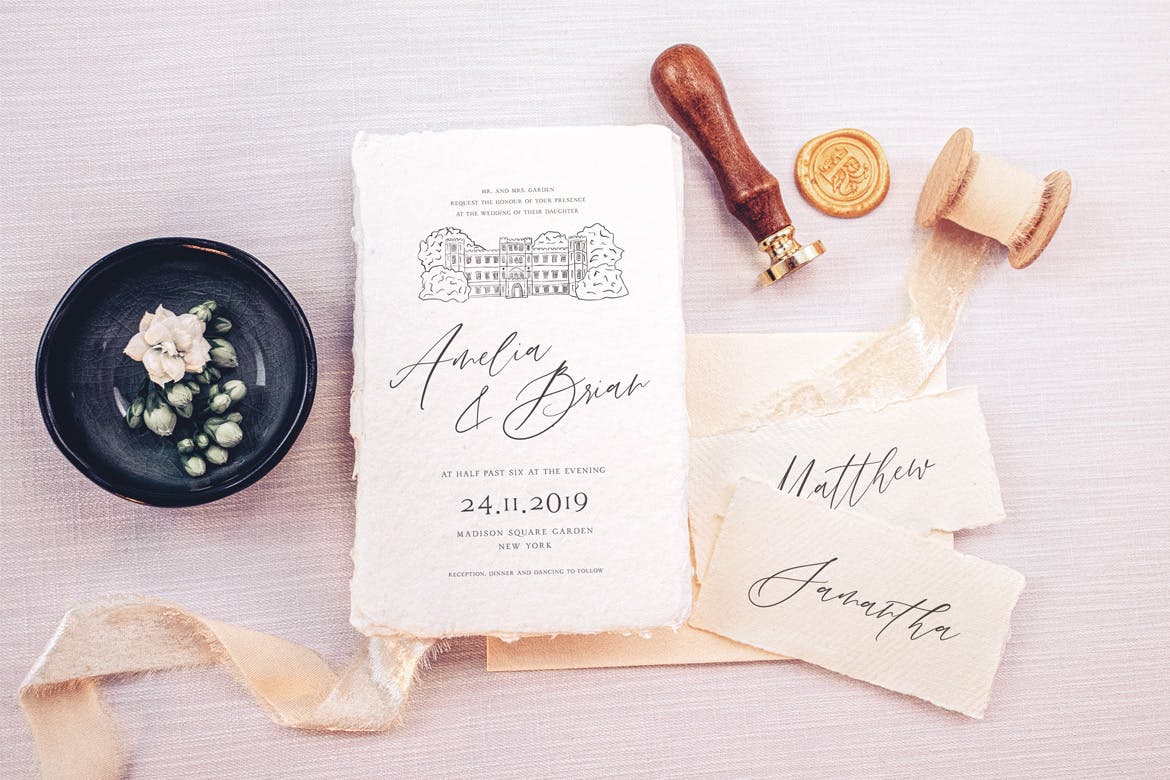 MR. AND MRS. GARDEN
REQUEST THE HONOUR OF YOUR PRESENCE
AT THE WEDDING OF THEIR DAUGHTER
Amelia
& Brian
AT HALF PAST SIX AT THE EVENING
24.11.2019
MADISON SQUARE GARDEN
NEW YORK
RECEPTION, DINNER AND DANCING TO FOLLOW
Matthew
Samantha